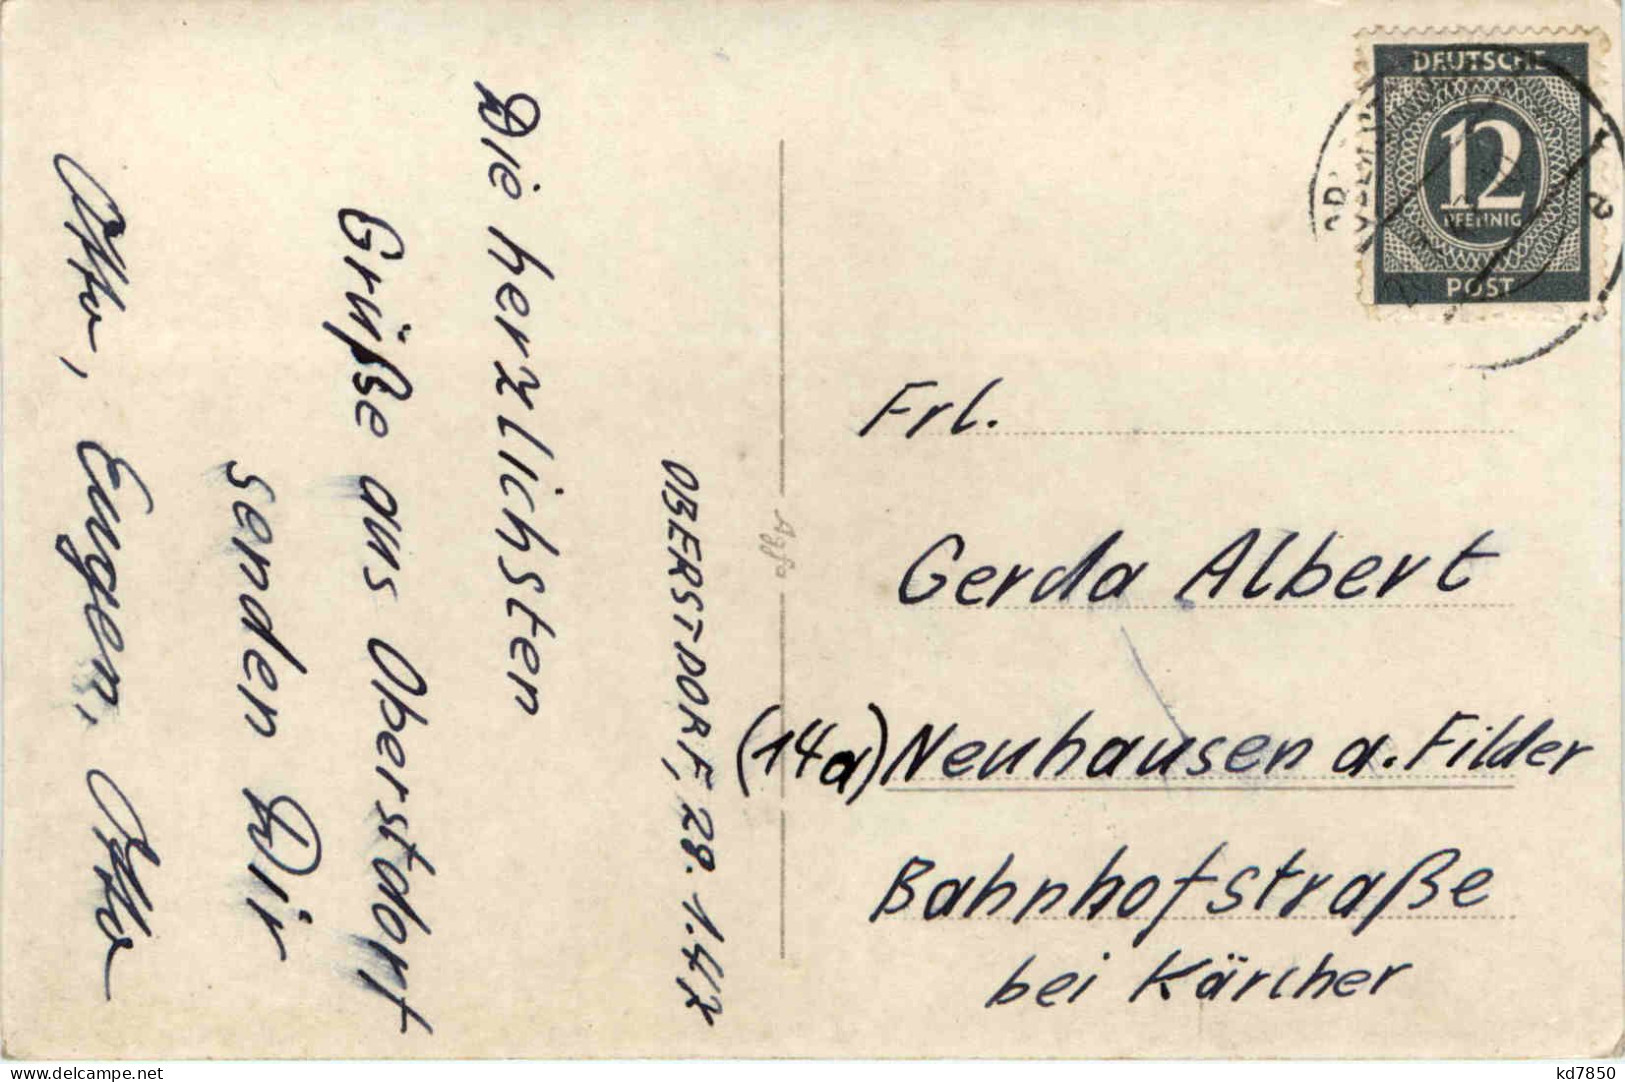 OBERSTDORF, 28.1.47
Die herzlichsten
Grüße aus Oberstdorf
senden Dir
Otto, Eugen, Otto
Agfa
DEUTSCHE
12
PFENNIG
POST
Frl.
Gerda Albert
(14a) Neuhausen a. Filder
Bahnhofstraße
bei Kärcher
www.delcampe.net
kd7850